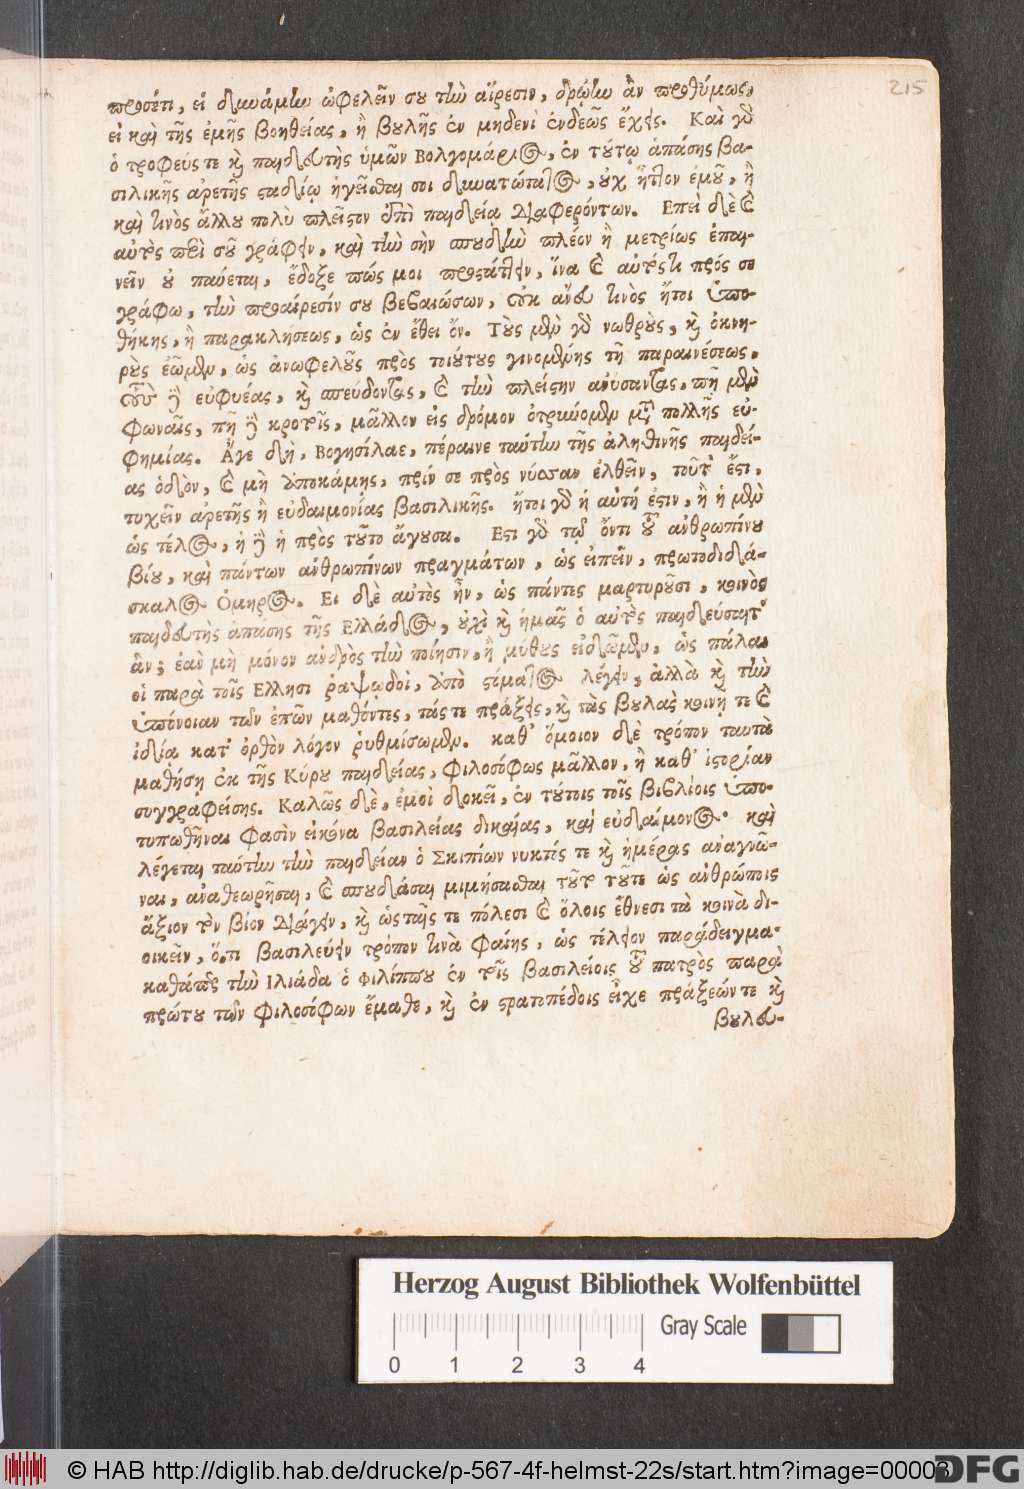 215
προσέτι, εἰ δυναίμην ὠφελεῖν σου τὴν αἵρεσιν, δρῴην ἂν προθύμως,
εἰ καὶ τῆς ἐμῆς βοηθείας, ἢ βουλῆς ἐν μηδενὶ ἐνδεῶς ἔχεις. Καὶ γὰρ
ὁ τροφεύς τε καὶ παιδευτὴς ὑμῶν Βολγομάριος, ἐν τούτῳ ἁπάσης βα-
σιλικῆς ἀρετῆς σταδίῳ ἡγεῖσθαι σοι δυνατώτατος, οὐχ ἧττον ἐμοῦ, ἢ
καὶ τινὸς ἄλλου πολὺ πλεῖστον ἐπὶ παιδείᾳ διαφερόντων. Επεὶ δὲ καὶ
αὐτὸς περὶ σοῦ γράφειν, καὶ τὴν σὴν σπουδὴν πλέον ἢ μετρίως ἐπαι-
νεῖν οὐ παύεται, ἔδοξε πώς μοι προστάττειν, ἵνα καὶ αὐτός τι πρός σε
γράφω, τὴν προαίρεσίν σου βεβαιώσων, οὐκ ἄνευ τινὸς ἤτοι ὑπο-
θήκης, ἢ παρακλήσεως, ὡς ἐν ἔθει ὄν. Τοὺς μὲν γὰρ νωθροὺς, καὶ ὀκνη-
ροὺς ἐῶμεν, ὡς ἀνωφελοῦς πρὸς τοιούτους γινομένης τῆς παραινέσεως.
τοὺς δὲ εὐφυέας, καὶ σπεύδοντας, καὶ τὴν πλείστην ἀνύσαντας, πῆ μὲν
φωναῖς, πῆ δὲ κρότοις, μᾶλλον εἰς δρόμον ὀτρύνομεν μετὰ πολλῆς εὐ-
φημίας. Ἄγε δὴ, Βογησίλαε, πέραινε ταύτην τῆς ἀληθινῆς παιδεί-
ας ὁδὸν, καὶ μὴ ἀποκάμῃς, πρίν σε πρὸς νύσσαν ἐλθεῖν, τοῦτ' ἔστι,
τυχεῖν ἀρετῆς ἢ εὐδαιμονίας βασιλικῆς. ἤτοι γὰρ ἡ αὐτή ἐστιν, ἢ ἡ μὲν
ὡς τέλος, ἡ δὲ ἡ πρὸς τοῦτο ἄγουσα. Εστι γὰρ τῷ ὄντι τοῦ ἀνθρωπίνου
βίου, καὶ πάντων ἀνθρωπίνων πραγμάτων, ὡς εἰπεῖν, πρωτοδιδά-
σκαλος Ὅμηρος. Ει δὲ αὐτὸς ἦν, ὡς πάντες μαρτυροῦσι, κοινὸς
παιδευτὴς ἁπάσης τῆς Ελλάδος, οὐχὶ καὶ ἡμᾶς ὁ αὐτὸς παιδεύσαιτ'
ἂν; ἐὰν μὴ μόνον ἀνδρὸς τὴν ποίησιν, ἢ μύθους εἰδῶμεν, ὡς πάλαι
οἱ παρὰ τοῖς Ελλησι ῥαψῳδοὶ, ἀπὸ στόματος λέγειν, ἀλλὰ καὶ τὴν
ὑπόνοιαν τῶν ἐπῶν μαθόντες, τάς τε πράξεις, καὶ τὰς βουλὰς κοινῇ τε καὶ
ἰδίᾳ κατ' ὀρθὸν λόγον ῥυθμίσωμεν. καθ' ὅμοιον δὲ τρόπον ταυτὰ
μαθήσῃ ἐκ τῆς Κύρου παιδείας, φιλοσόφως μᾶλλον, ἢ καθ' ἱστορίαν
συγγραφείσης. Καλῶς δὲ, ἐμοὶ δοκεῖ, ἐν τούτοις τοῖς βιβλίοις ὑπο-
τυπωθῆναι φασὶν εἰκόνα βασιλείας δικαίας, καὶ εὐδαίμονος. καὶ
λέγεται ταύτην τὴν παιδείαν ὁ Σκιπίων νυκτός τε καὶ ἡμέρας ἀναγνῶ-
ναι, ἀναθεωρῆσαι, καὶ σπουδάσαι μιμήσασθαι τοῦτο τοῦτε ὡς ἀνθρώποις
ἄξιον τὸν βίον διάγειν, καὶ ὡς ταῖς τε πόλεσι καὶ ὅλοις ἔθνεσι τὰ κοινὰ δι-
οικεῖν, ὅ,τι βασιλεύειν τρόπον τινὰ φαίης, ὡς τέλειον παράδειγμα.
καθάπερ τὴν Ιλιάδα ὁ Φιλίππου ἐν τοῖς βασιλείοις τοῦ πατρὸς παρὰ
πρώτου τῶν φιλοσόφων ἔμαθε, καὶ ἐν στρατοπέδοις εἶχε πράξεών τε καὶ
βουλευ-
Herzog August Bibliothek Wolfenbüttel
Gray Scale
0 1 2 3 4
© HAB http://diglib.hab.de/drucke/p-567-4f-helmst-22s/start.htm?image=00003
DFG